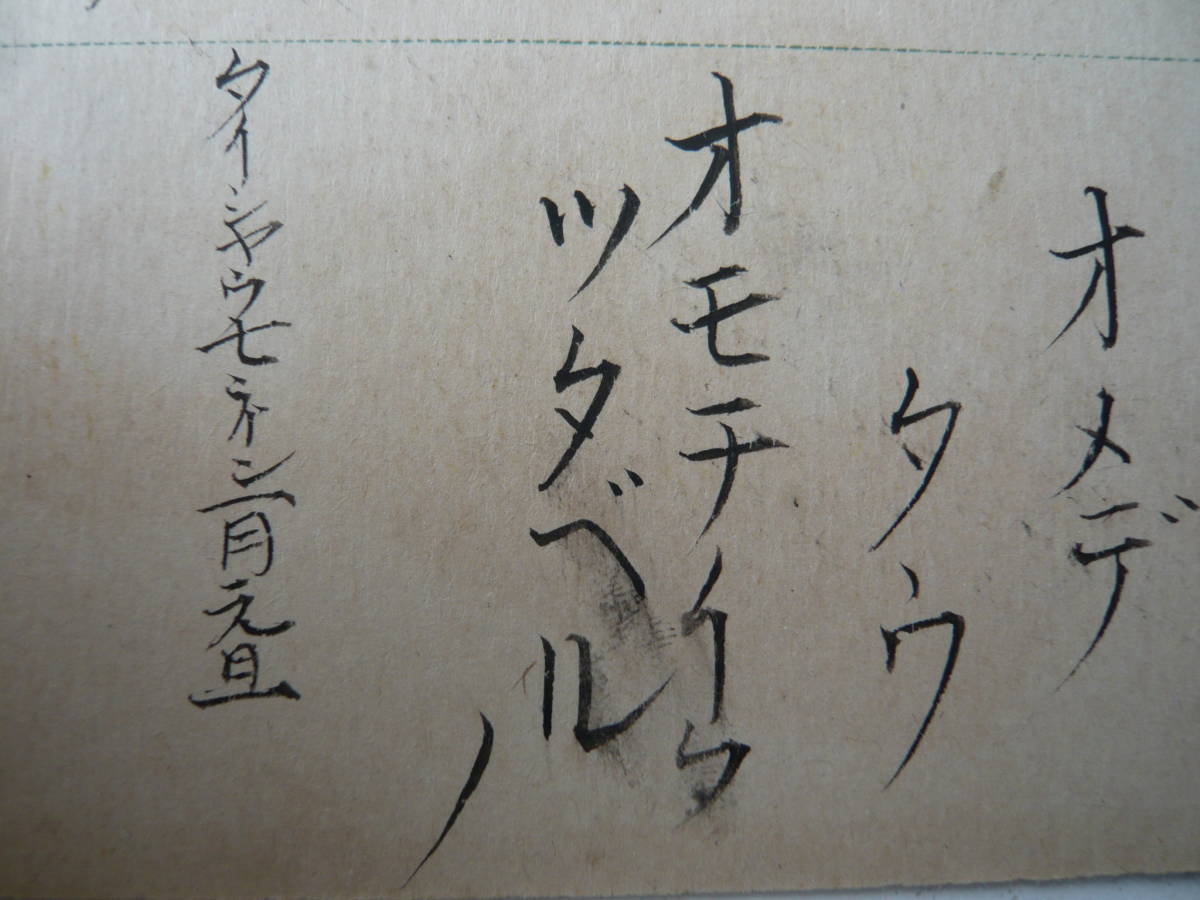 オメデ
タウ
オモチイク
ツタベル
ノ
タイシヤウ七ネン一月元旦